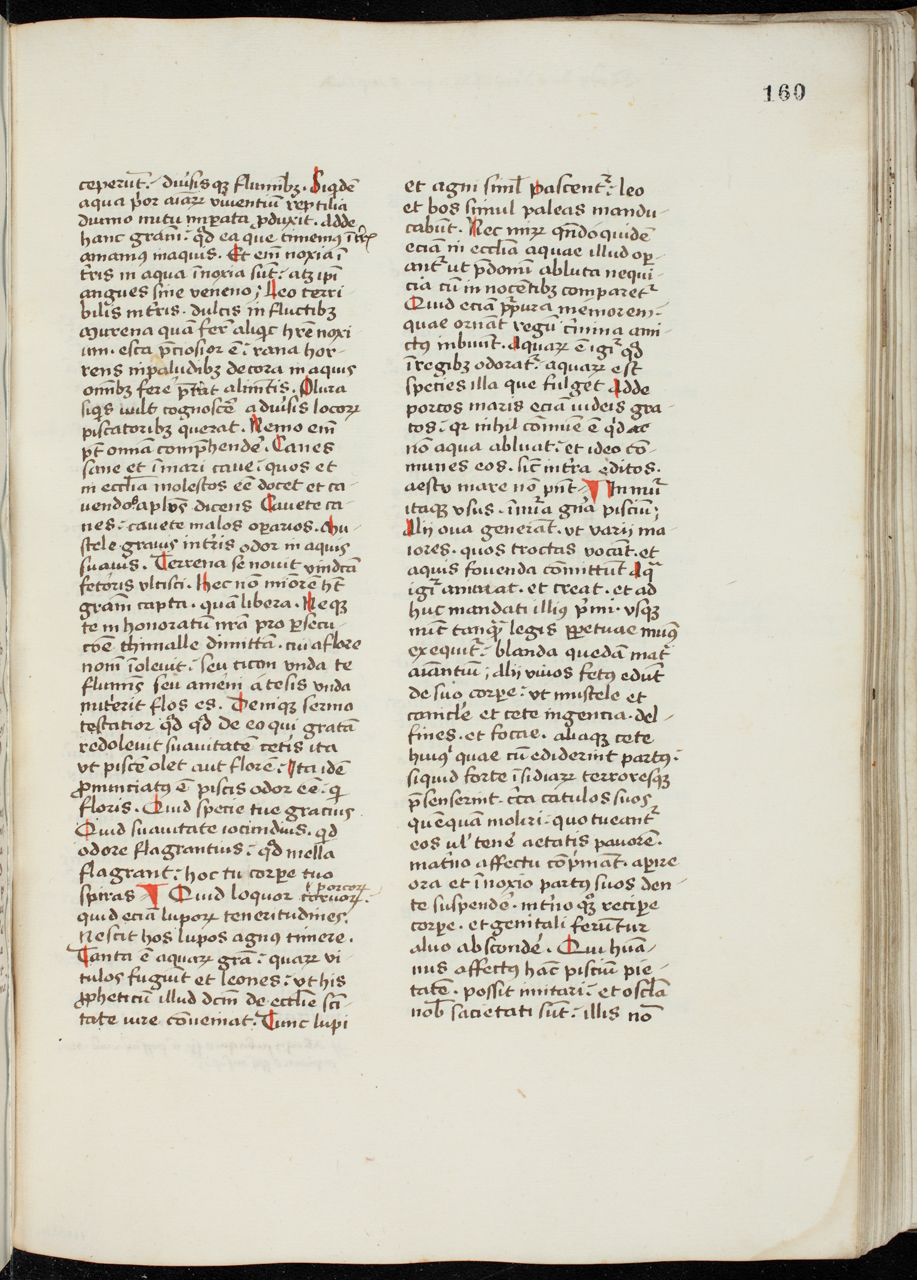 160
ceperūt. diuīsisqꝫ fluminibꝫ. Siqdē
aqua prior aīarꝝ viuentiū reptilia
diuino nutu inperata ꝓduxit. Adde
hanc grām. qd̄ ea que timemꝰ ī tris
amamus in aquis. Et enī noxia ī
tris in aqua īnoxia sūt. atqꝫ ipī
angues sine veneno; Leo terri-
bilis in tris. dulcis in fluctibꝫ
Murena quā fer̄ aliqͥc hr̄e noxi
um. esca p̄ciosior ē. rana hor-
rens in paludibꝫ decora in aquis
omībꝫ fere p̄stat alimentis. Plura
siqis uult cognoscē a diuīsis locorꝝ
piscatoribꝫ querat. Nemo enī
pt̄ omnia comp̄hendē. Canes
sane et ī mari caue. quos et
in eccl̄ia molestos eē docet et ca-
uendos apl̄us dicens Cauete ca
nes. cauete malos oꝑarios. Mu-
stele grauis in tris odor in aquis
suauis. Terrena se nouit vindictā
fetoris vltisci. hec nō minorē hēt
grām capta. quā libera. Neqꝫ
te in honoratū nr̄a pro ꝑsecu-
tōe thimalle dimittā. cui a flore
nomē īoleuit. seu ticini vnda te
fluminis seu ameni atesis vnda
nutrierit flos es. Deniqꝫ sermo
testatior qd̄ qd̄ de eo qui gratā
redoleuit suauitatē cetis ita
vt piscē olet aut florē. Ita idē
ꝓnunciatꝰ ē piscis odor eē. qi
floris. Quid specie tue gracius
Quid suauitate iocundius. qd
odore flagrantius. qd̄ mella
flagrant. hoc tu corꝑe tuo
spiras ¶ Quid loquor coruorꝝ
ł porcorꝝ
quid eciā luporꝝ teneritudines.
Nescit hos lupos agnus timere.
Tanta ē aquarꝝ grā. quarꝝ vi-
tulos fugiūt et leones. vt his
ꝓpheticū illud dcm̄ de eccl̄ie sci-
tate iure cōueniat. Tunc lupi
et agni simł pascentr̄. leo
et bos simul paleas mandu-
cabūt. Nec mirꝝ qn̄doquidē
eciā in eccl̄ia aquae illud oꝑ-
antr̄ ut p̄domī abluta nequi-
cia cū in nocētibꝫ comparetr̄
Quid eciā p̄pura memorem.
quae ornāt regū cīmina ami-
ctꝰ inbuūt. Aquarꝝ ē igr̄ qd̄
ī regibꝫ odoratr̄. aquarꝝ est
species illa que fulget Adde
porcos maris eciā iudeis gra
tos. qr nihil cōmune ē qd̄
nō aqua abluat. et ideo cō-
munes eos. sic̄ in tra editos.
aestu mare nō pn̄t ¶ In mrī
itaqꝫ vsus. īnūa gn̄a pisciū;
Alij oua generāt. vt varii ma-
iores. quos troctas vocāt. et
aquis fouenda comittūt Aqᵃ
igr̄ animat. et creat. et ad
huc mandati illiꝰ pͥmi. vsqꝫ
nūc tanqꝫ legis ꝑpetuae munꝰ
exequitr̄. blanda quedā mat̄
aīantiū; Alij viuos fetꝰ edūt
de suo corꝑe. vt mustele et
canicl̄e et cete ingencia. del-
fines. et focae. aliaqꝫ cete
huiꝰ quae cū ediderint partꝰ.
siquid forte īsidiarꝝ terroresqꝫ
p̄senserint. crca catulos suos
quēquā moliri. quo tueantr̄
eos uł tenē aetatis pauorē.
mat̄no affectu cōp̄mant. aꝑire
ora et īnoxio partꝰ suos den-
te suspendē. int̄no qꝫ recipe
corꝑe. et genitali feruntur
aluo abscondē. Qui huā-
nus affectꝰ hāc pisciū pie-
tatē. possit imitari. et oscl̄a
nob̄ sacietati sūt. illis nō